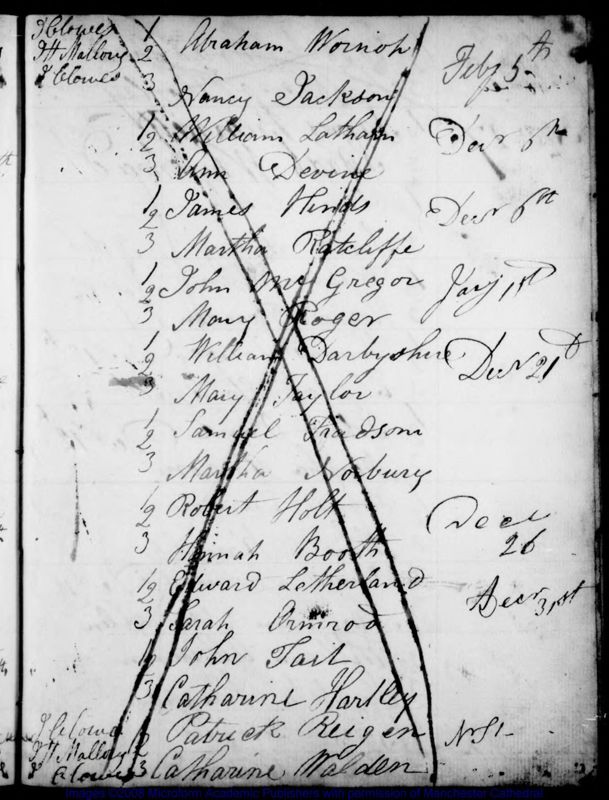 J Clowes 1 Abraham Worinoh
J H Mallory 2 Feby 5th
J Clowes 3 Nancy Jackson
1 2 William Latham Decr 6th
3 Ann Devine
1 2 James Hinds Decr 6th
3 Martha Ratcliffe
1 2 John Mc Gregor Jany 1st
3 Mary Roger
1 2 William Darbyshire Decr 21st
3 Mary Taylor
1 2 Samuel
3 Martha Norbury
1 2 Robert Holt Decr
3 Hannah Booth 26
1 2 Edward Letherland Decr 31st
3 Sarah Ormrod
1 2 John Tait
3 Catharine Hartley
J Clowes 1 Patrick Reigen
J H Mallory 2
J Clowes 3 Catharine Walden
Images ©2008 Microform Academic Publishers with permission of Manchester Cathedral